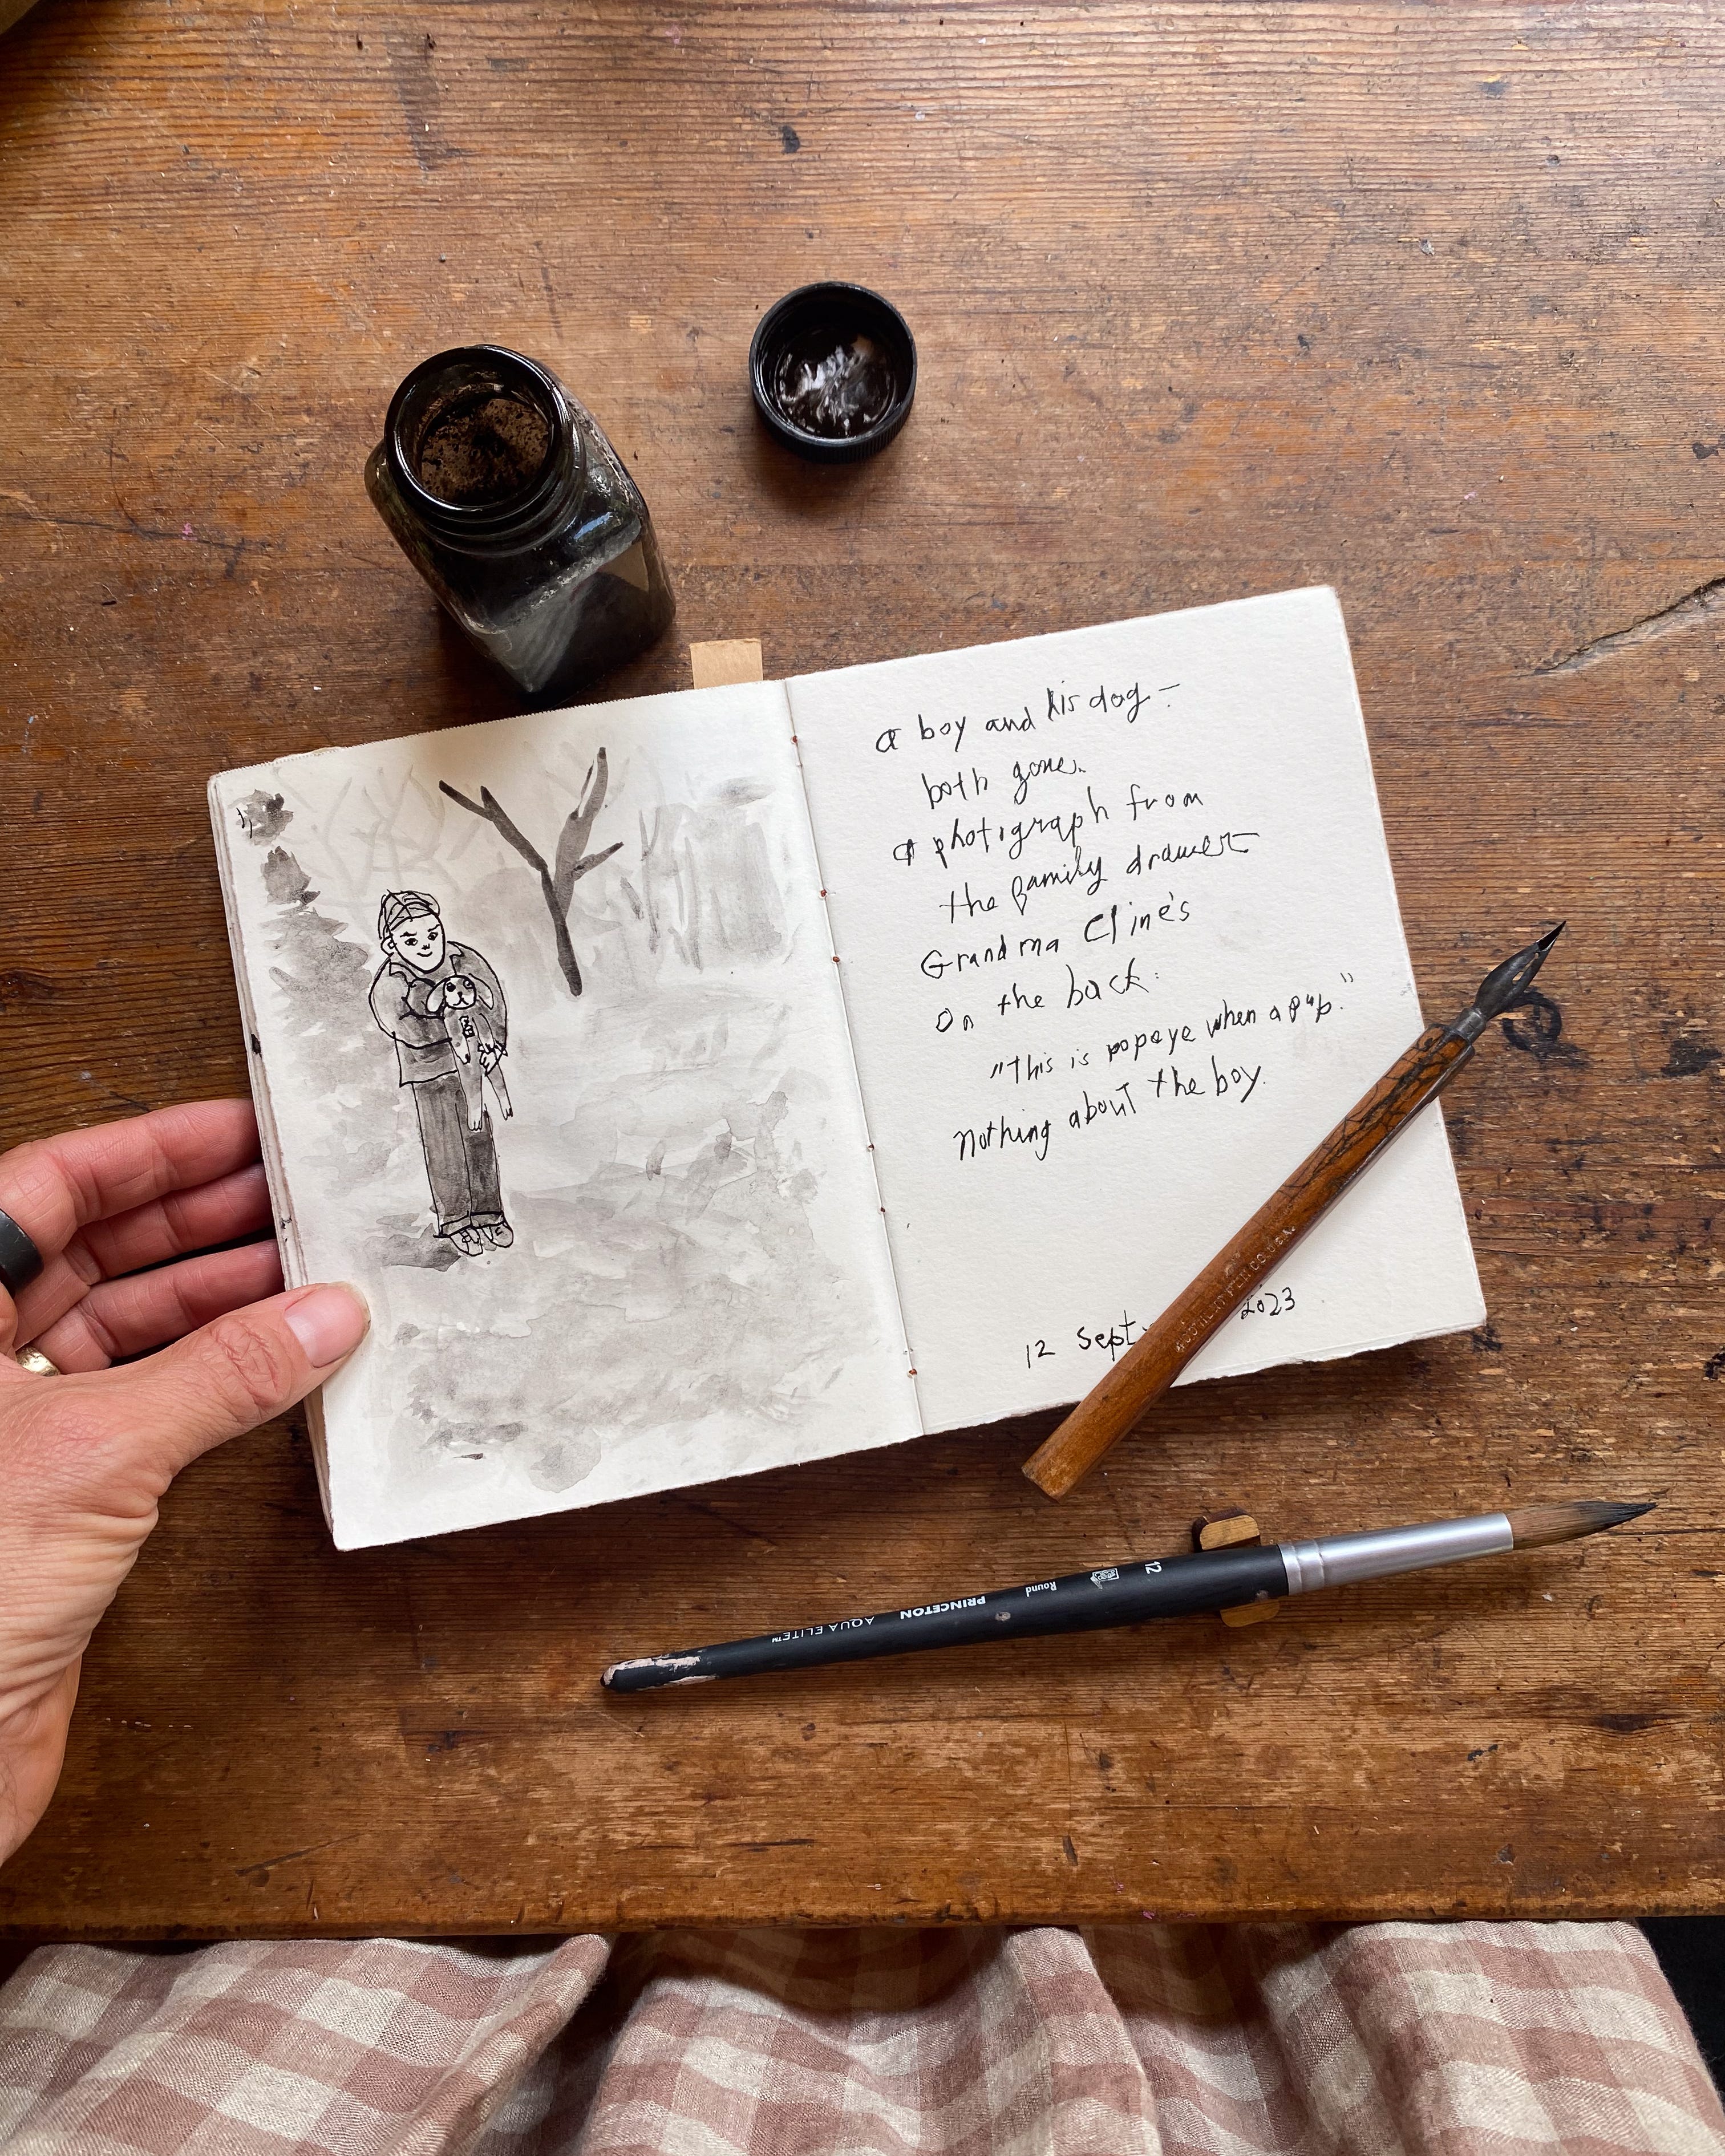 a boy and his dog —
both gone.
a photograph from
the family drawer—
Grandma Cline's
on the back:
"This is popeye when a pup."
nothing about the boy.
12 Sept 2023
12
Round
PRINCETON
AQUA ELITE™